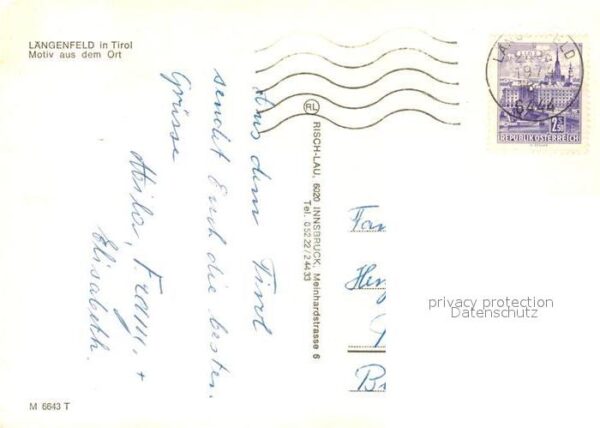 LÄNGENFELD in Tirol
Motiv aus dem Ort
Aus dem Tirol
sendet Euch die besten
Grüsse
Franz +
Elisabeth.
RL RISCH-LAU, 6020 INNSBRUCK, Meinhardstrasse 6
Tel. 05222/24433
LÄNGENFELD
6444
2.50
REPUBLIK ÖSTERREICH
Fam
privacy protection
Datenschutz
M 6643 T